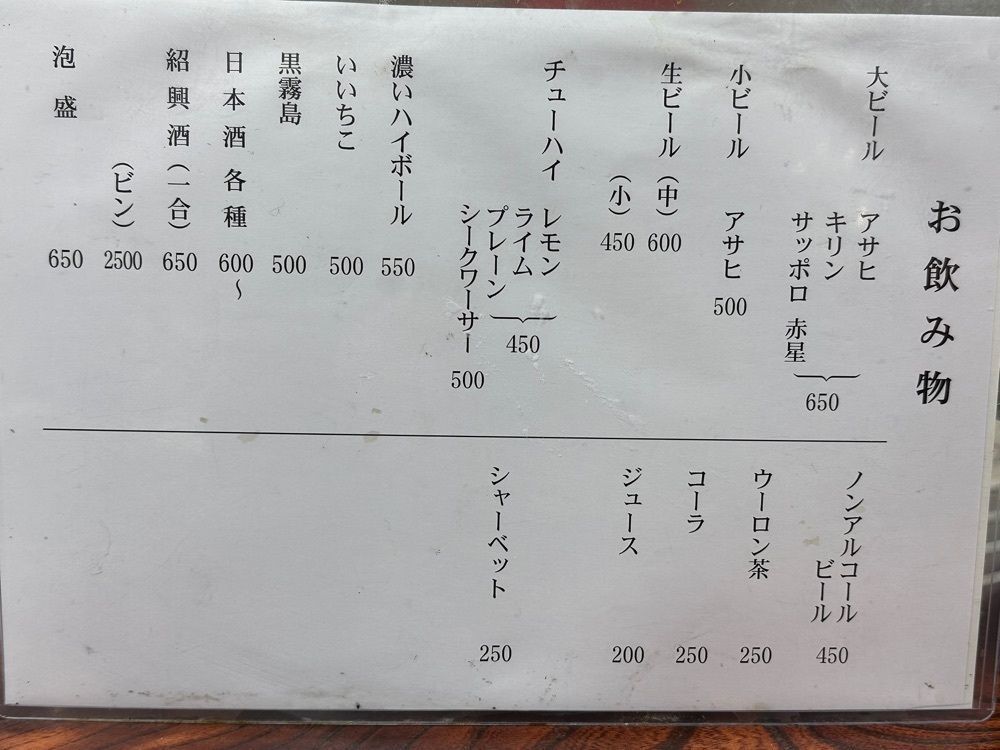 お飲み物
大ビール アサヒ
キリン
サッポロ 赤星
650
小ビール アサヒ 500
生ビール (中) 600
(小) 450
チューハイ レモン
ライム
プレーン
450
シークワーサー 500
濃いハイボール 550
いいちこ 500
黒霧島 500
日本酒 各種 600~
紹興酒(一合) 650
(ビン) 2500
泡盛 650
ノンアルコール
ビール 450
ウーロン茶 250
コーラ 250
ジュース 200
シャーベット 250